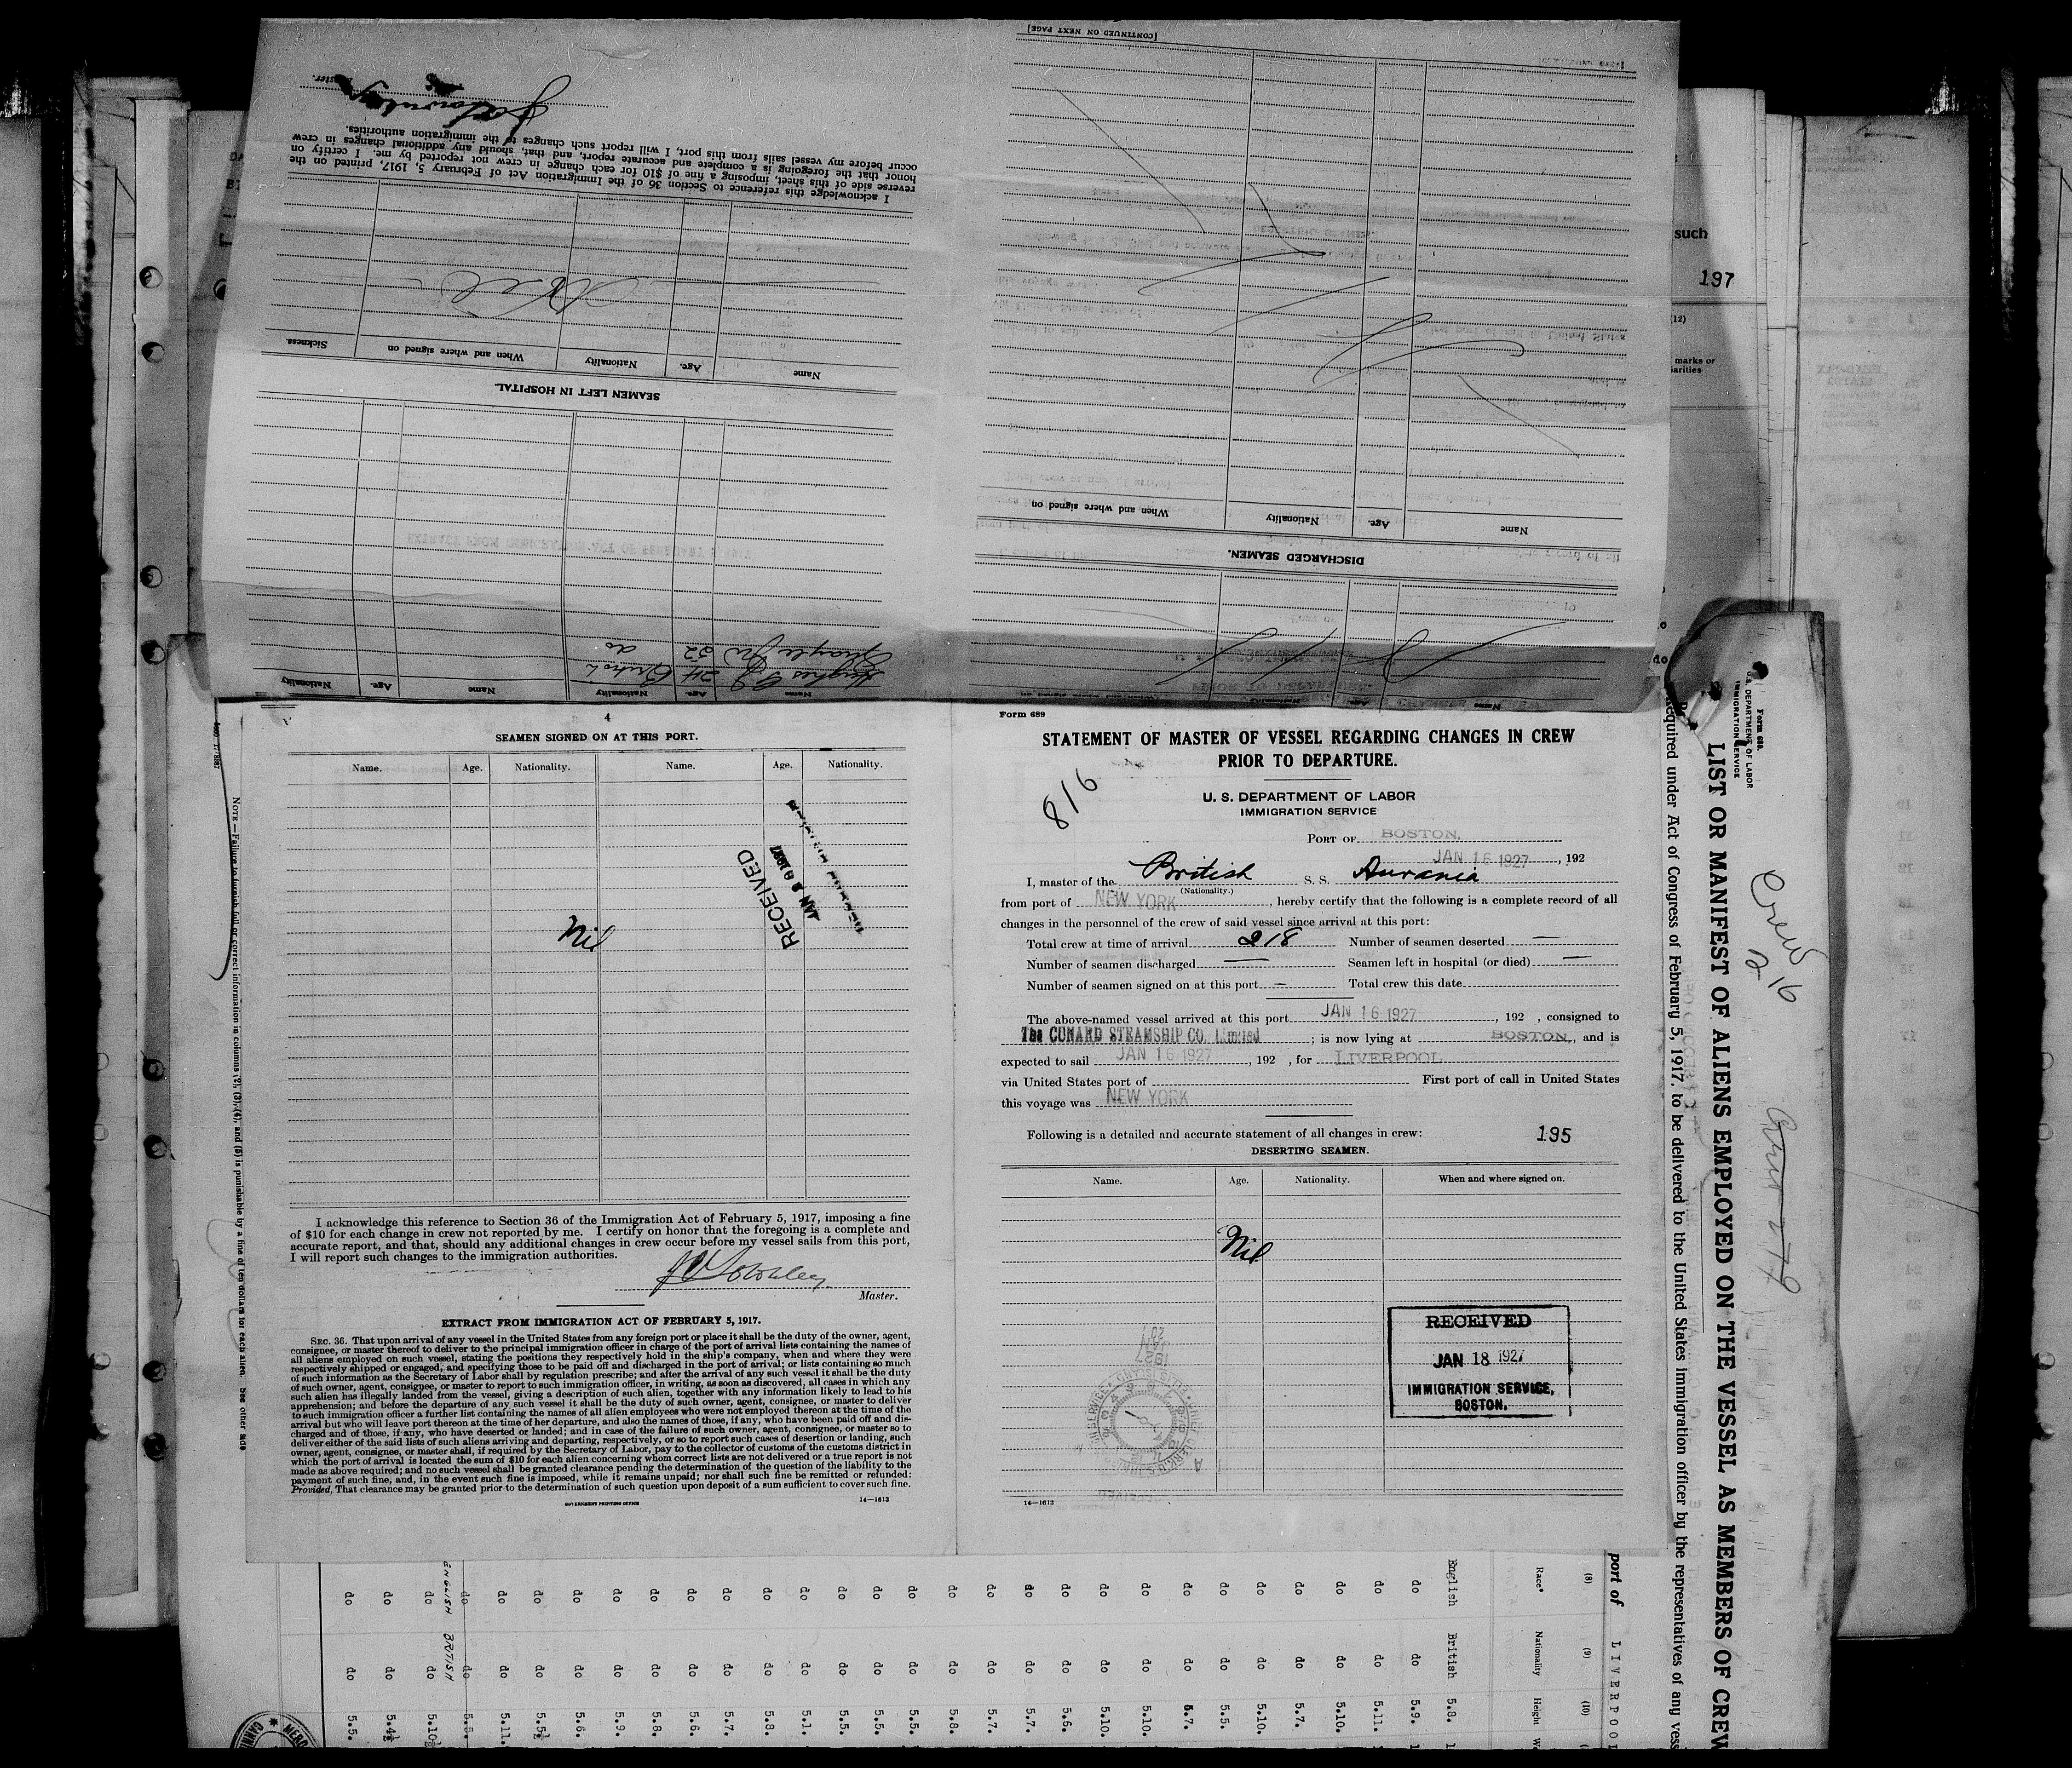 [CONTINUED ON NEXT PAGE]
Master.
I acknowledge this reference to Section 36 of the Immigration Act of February 5, 1917, printed on the
reverse side of this sheet, imposing a fine of $10 for each change in crew not reported by me. I certify on
honor that the foregoing is a complete and accurate report, and that, should any additional changes in crew
occur before my vessel sails from this port, I will report such changes to the immigration authorities.
SEAMEN LEFT IN HOSPITAL.
Name Age. Nationality When and where signed on Sickness.
DISCHARGED SEAMEN.
Name Age. Nationality When and where signed on
Name Age. Nationality Name Age. Nationality
Hughes 24 British
22 do
such
197
(12)
marks or
4
SEAMEN SIGNED ON AT THIS PORT.
Name. Age. Nationality. Name. Age. Nationality.
Nil
RECEIVED
JAN 1927
I acknowledge this reference to Section 36 of the Immigration Act of February 5, 1917, imposing a fine
of $10 for each change in crew not reported by me. I certify on honor that the foregoing is a complete and
accurate report, and that, should any additional changes in crew occur before my vessel sails from this port,
I will report such changes to the immigration authorities.
Master.
EXTRACT FROM IMMIGRATION ACT OF FEBRUARY 5, 1917.
SEC. 36. That upon arrival of any vessel in the United States from any foreign port or place it shall be the duty of the owner, agent,
consignee, or master thereof to deliver to the principal immigration officer in charge of the port of arrival lists containing the names of
all aliens employed on such vessel, stating the positions they respectively hold in the ship's company, when and where they were
respectively shipped or engaged, and specifying those to be paid off and discharged in the port of arrival; or lists containing so much
of such information as the Secretary of Labor shall by regulation prescribe; and after the arrival of any such vessel it shall be the duty
of such owner, agent, consignee, or master to report to such immigration officer, in writing, as soon as discovered, all cases in which any
such alien has illegally landed from the vessel, giving a description of such alien, together with any information likely to lead to his
apprehension; and before the departure of any such vessel it shall be the duty of such owner, agent, consignee, or master to deliver
to such immigration officer a further list containing the names of all alien employees who were not employed thereon at the time of the
arrival but who will leave port thereon at the time of her departure, and also the names of those, if any, who have been paid off and dis-
charged and of those, if any, who have deserted or landed; and in case of the failure of such owner, agent, consignee, or master so to
deliver either of the said lists of such aliens arriving and departing, respectively, or so to report such cases of desertion or landing, such
owner, agent, consignee, or master shall, if required by the Secretary of Labor, pay to the collector of customs of the customs district in
which the port of arrival is located the sum of $10 for each alien concerning whom correct lists are not delivered or a true report is not
made as above required; and no such vessel shall be granted clearance pending the determination of the question of the liability to the
payment of such fine, and, in the event such fine is imposed, while it remains unpaid; nor shall such fine be remitted or refunded:
Provided, That clearance may be granted prior to the determination of such question upon deposit of a sum sufficient to cover such fine.
GOVERNMENT PRINTING OFFICE 14—1613
Form 689
STATEMENT OF MASTER OF VESSEL REGARDING CHANGES IN CREW
PRIOR TO DEPARTURE.
816
U. S. DEPARTMENT OF LABOR
IMMIGRATION SERVICE
PORT OF BOSTON,
JAN 16 1927, 192
I, master of the British S. S. Aurania
(Nationality.)
from port of NEW YORK, hereby certify that the following is a complete record of all
changes in the personnel of the crew of said vessel since arrival at this port:
Total crew at time of arrival 218 Number of seamen deserted —
Number of seamen discharged — Seamen left in hospital (or died) —
Number of seamen signed on at this port — Total crew this date
The above-named vessel arrived at this port JAN 16 1927, 192 , consigned to
The CUNARD STEAMSHIP CO. Limited ; is now lying at BOSTON, and is
expected to sail JAN 16 1927, 192 , for LIVERPOOL
via United States port of First port of call in United States
this voyage was NEW YORK
Following is a detailed and accurate statement of all changes in crew: 195
DESERTING SEAMEN.
Name. Age. Nationality. When and where signed on.
Nil
RECEIVED
JAN 18 1927
IMMIGRATION SERVICE,
BOSTON.
14—1613
NOTE.—Failure to furnish full or correct information in columns (2), (3), (4), and (5) is punishable by a fine of ten dollars for each alien. See other side
Form 689.
U. S. DEPARTMENT OF LABOR
IMMIGRATION SERVICE
LIST OR MANIFEST OF ALIENS EMPLOYED ON THE VESSEL AS MEMBERS OF CREW
Required under Act of Congress of February 5, 1917, to be delivered to the United States immigration officer by the representatives of any vess
Crew
216
port of LIVERPOOL
(8) (9) (10)
Race* Nationality Height
English British 5.8.
do do 5.9.
do do 5.11.
do do 5.10.
do do 5.7.
do do 5.10.
do do 5.5.
do do 5.7.
do do 5.10.
do do 5.10.
do do 5.6.
do do 5.7.
do do 5.7.
do do 5.8.
do do 5.5.
do do 5.5.
do do 5.5.
do do 5.1.
do do 5.8.
do do 5.7.
do do 5.6.
do do 5.8.
do do 5.9.
do do 5.6.
do do 5.5½
do do 5.11.
do do 5.8.
ENGLISH BRITISH
do do 5.10½
do do 5.4½
do do 5.5.